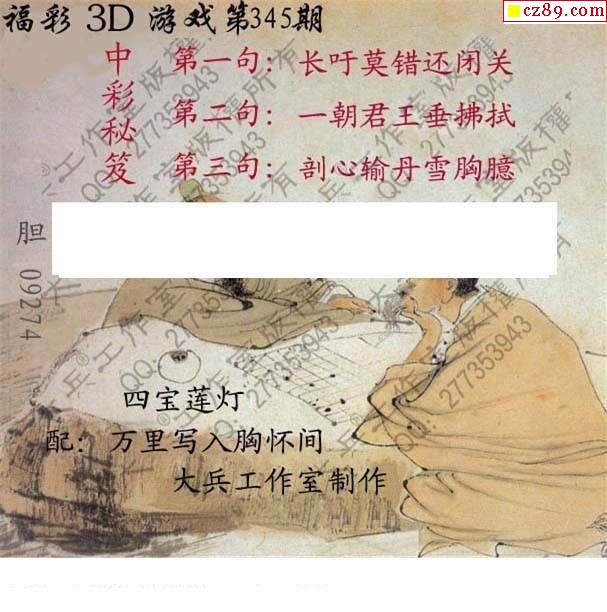 cz89.com
福彩 3D 游戏第345期
中彩秘笈
第一句：长吁莫错还闭关
第二句：一朝君王垂拂拭
第三句：剖心输丹雪胸臆
胆 09274
四宝莲灯
配：万里写入胸怀间
大兵工作室制作
大兵®工作室版權所有
QQ:277353943